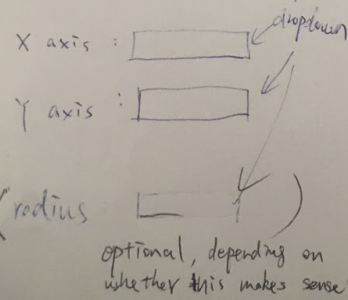 dropdown
X axis :
Y axis :
(radius
optional, depending on
whether this makes sense